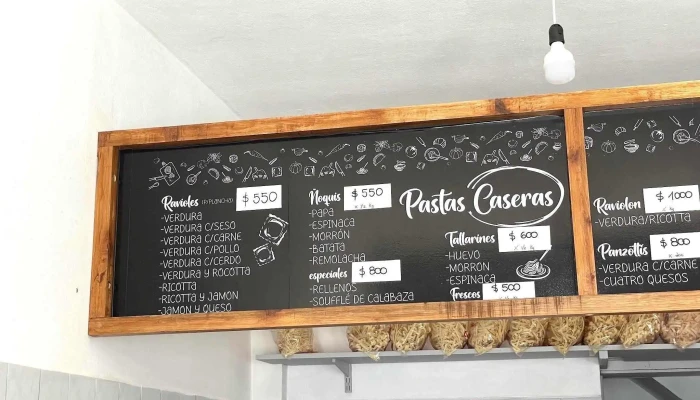 Ravioles (x PLANCHA) $ 550
-VERDURA
-VERDURA C/SESO
-VERDURA C/CARNE
-VERDURA C/POLLO
-VERDURA C/CERDO
-VERDURA Y ROCOTTA
-RICOTTA
-RICOTTA Y JAMON
-JAMON Y QUESO
Ñoquis $ 550
-PAPA
-ESPINACA
-MORRÓN
-BATATA
-REMOLACHA
especiales $ 800
-RELLENOS
-SOUFFLÉ DE CALABAZA
Pastas Caseras
Tallarines $ 600
-HUEVO
-MORRÓN
-ESPINACA
Frescos $ 500
Raviolon $ 1000
-VERDURA/RICOTTA
Panzottis $ 800
-VERDURA C/CARNE
-CUATRO QUESOS